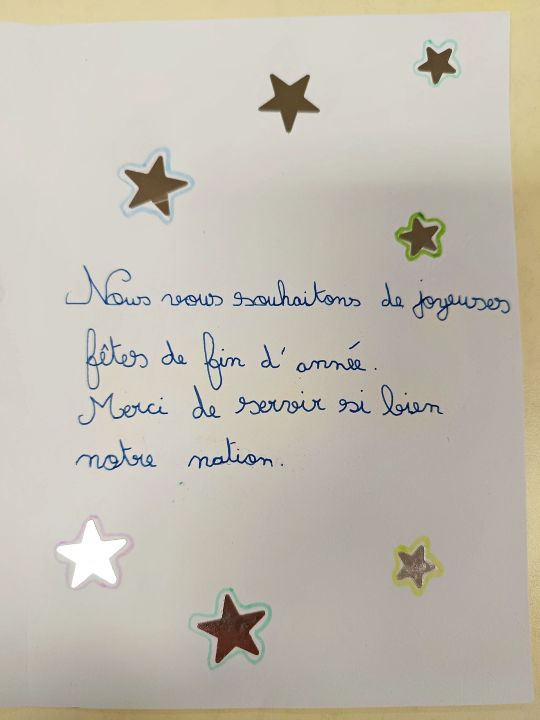 Nous vous souhaitons de joyeuses
fêtes de fin d'année.
Merci de servir si bien
notre nation.